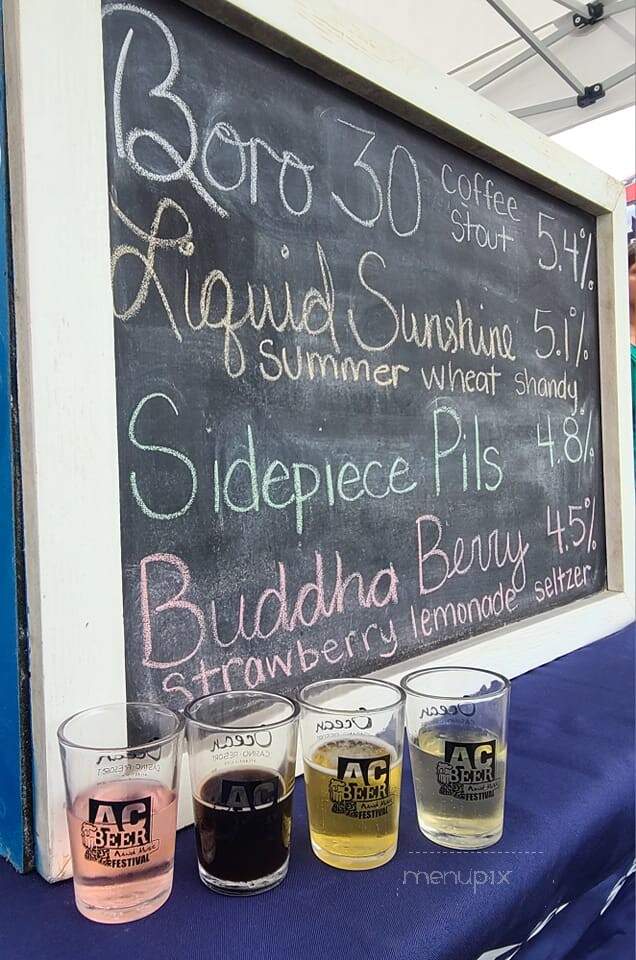 Boro 30 coffee stout 5.4%
Liquid Sunshine 5.1%
summer wheat shandy
Sidepiece Pils 4.8%
Buddha Berry 4.5%
strawberry lemonade seltzer
Ocean
CASINO RESORT
Ocean
CASINO RESORT
Ocean
CASINO RESORT
Ocean
AC
BEER
And Music
FESTIVAL
AC
AC
BEER
And Music
FESTIVAL
AC
BEER
And Music
FESTIVAL
menupix